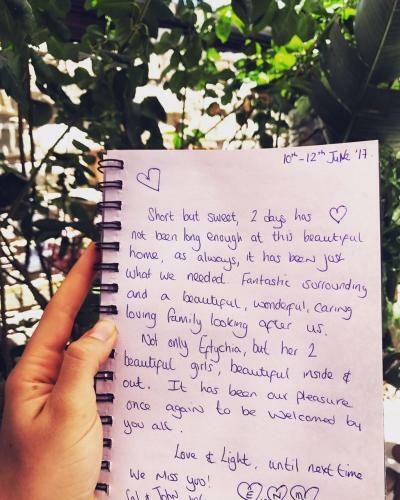 10th - 12th June '17.
Short but sweet, 2 days has
not been long enough at this beautiful
home, as always, it has been just
what we needed. Fantastic surrounding
and a beautiful, wonderful, caring
loving family looking after us.
Not only Eftychia, but her 2
beautiful girls, beautiful inside &
out. It has been our pleasure
once again to be welcomed by
you all.
Love & Light, until next time
We miss you!
& John
E N M